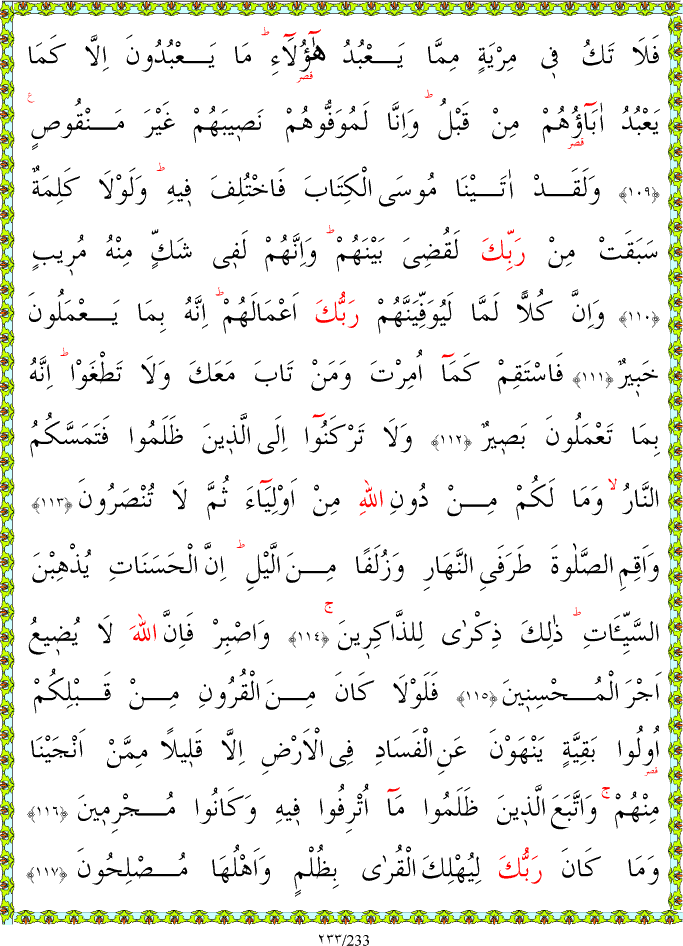 فَلَا تَكُ فٖى مِرْيَةٍ مِمَّا يَــعْبُدُ هٰٓؤُلَٓاءِۜ مَا يَــعْبُدُونَ اِلَّا كَمَا
قصر
يَعْبُدُ اٰبَٓاؤُهُمْ مِنْ قَبْلُۜ وَاِنَّا لَمُوَفُّوهُمْ نَصٖيبَهُمْ غَيْرَ مَــنْقُوصٍࣖ
قصر
﴿١٠٩﴾ وَلَقَــدْ اٰتَــيْنَا مُوسَى الْكِتَابَ فَاخْتُلِفَ فٖيهِۜ وَلَوْلَا كَلِمَةٌ
سَبَقَتْ مِنْ رَبِّكَ لَقُضِىَ بَيْنَهُمْۜ وَاِنَّهُمْ لَفٖى شَكٍّ مِنْهُ مُرٖيبٍ
﴿١١٠﴾ وَاِنَّ كُلًّا لَمَّا لَيُوَفِّيَنَّهُمْ رَبُّكَ اَعْمَالَهُمْۜ اِنَّهُ بِمَا يَــعْمَلُونَ
خَبٖيرٌ ﴿١١١﴾ فَاسْتَقِمْ كَمَٓا اُمِرْتَ وَمَنْ تَابَ مَعَكَ وَلَا تَطْغَوْاۜ اِنَّهُ
بِمَا تَعْمَلُونَ بَصٖيرٌ ﴿١١٢﴾ وَلَا تَرْكَنُٓوا اِلَى الَّذٖينَ ظَلَمُوا فَتَمَسَّكُمُ
النَّارُۙ وَمَا لَكُمْ مِــنْ دُونِ اللّٰهِ مِنْ اَوْلِيَٓاءَ ثُمَّ لَا تُنْصَرُونَ ﴿١١٣﴾
وَاَقِمِ الصَّلٰوةَ طَرَفَىِ النَّهَارِ وَزُلَفًا مِــنَ الَّيْلِۜ اِنَّ الْحَسَنَاتِ يُذْهِبْنَ
السَّيِّـَٔاتِۜ ذٰلِكَ ذِكْرٰى لِلذَّاكِرٖينَۚ ﴿١١٤﴾ وَاصْبِرْ فَاِنَّ اللّٰهَ لَا يُضٖيعُ
اَجْرَ الْمُــحْسِنٖينَ ﴿١١٥﴾ فَلَوْلَا كَانَ مِــنَ الْقُرُونِ مِــنْ قَــبْلِكُمْ
اُولُوا بَقِيَّةٍ يَنْهَوْنَ عَنِ الْفَسَادِ فِى الْاَرْضِ اِلَّا قَلٖيلًا مِمَّنْ اَنْجَيْنَا
قصر
مِنْهُمْۚ وَاتَّبَعَ الَّذٖينَ ظَلَمُوا مَٓا اُتْرِفُوا فٖيهِ وَكَانُوا مُــجْرِمٖينَ ﴿١١٦﴾
وَمَا كَانَ رَبُّكَ لِيُهْلِكَ الْقُرٰى بِظُلْمٍ وَاَهْلُهَا مُــصْلِحُونَ ﴿١١٧﴾
٢٣٣/233